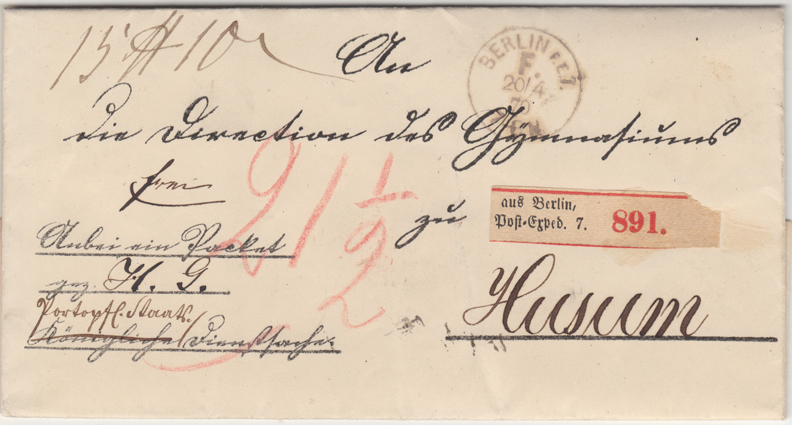 15 ℔ 10
An
BERLIN P.E.7.
F.
20/4
70
die Direction des Gymnasiums
frei
21 1/2
zu
aus Berlin,
Post-Exped. 7. 891.
Anbei ein Packet
gez. H. G.
Husum
Portopfl. Staats
Königliche Dienstsache.